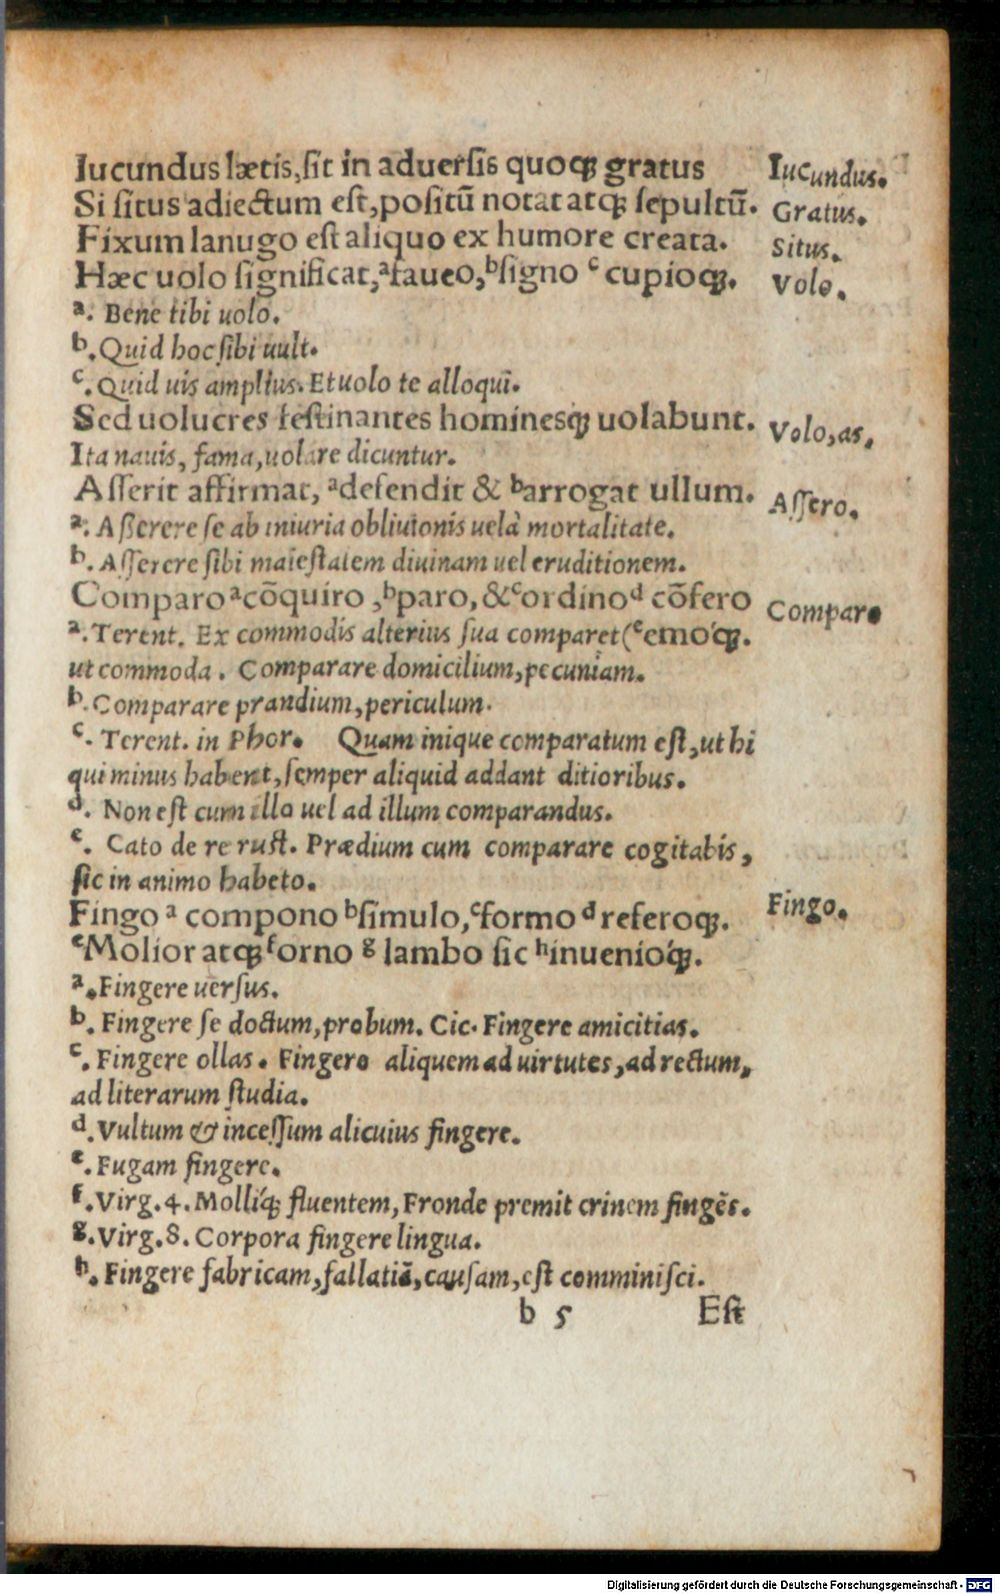 Iucundus lætis, sit in aduersis quoqꝫ gratus Iucundus.
Si situs adiectum est, positū notat atqꝫ sepultū. Gratus.
Fixum lanugo est aliquo ex humore creata. Situs.
Hæc uolo significat, ᵃfaueo, ᵇsigno ᶜcupioqꝫ. Volo.
ᵃ. Bene tibi uolo.
ᵇ. Quid hoc sibi uult.
ᶜ. Quid uis amplius. Et uolo te alloqui.
Sed uolucres festinantes hominesqꝫ uolabunt. Volo, as.
Ita nauis, fama, uolare dicuntur.
Asserit affirmat, ᵃdefendit & ᵇarrogat ullum. Assero.
ᵃ. Asserere se ab iniuria obliuionis uel à mortalitate.
ᵇ. Asserere sibi maiestatem diuinam uel eruditionem.
Comparo ᵃcōquiro, ᵇparo, & ᶜordino ᵈcōfero Comparo
ᵃ. Terent. Ex commodis alterius sua comparet (ᵉemoqꝫ.
ut commoda. Comparare domicilium, pecuniam.
ᵇ. Comparare prandium, periculum.
ᶜ. Terent. in Phor. Quam inique comparatum est, ut hi
qui minus habent, semper aliquid addant ditioribus.
ᵈ. Non est cum illo uel ad illum comparandus.
ᵉ. Cato de re rust. Prædium cum comparare cogitabis,
sic in animo habeto.
Fingo ᵃcompono ᵇsimulo, ᶜformo ᵈreferoqꝫ. Fingo.
ᵉMolior atqꝫ ᶠorno ᵍlambo sic ʰinuenióqꝫ.
ᵃ. Fingere uersus.
ᵇ. Fingere se doctum, probum. Cic. Fingere amicitias.
ᶜ. Fingere ollas. Fingere aliquem ad uirtutes, ad rectum,
ad literarum studia.
ᵈ. Vultum & incessum alicuius fingere.
ᵉ. Fugam fingere.
ᶠ. Virg. 4. Mollíqꝫ fluentem, Fronde premit crinem fingēs.
ᵍ. Virg. 8. Corpora fingere lingua.
ʰ. Fingere fabricam, fallatiā, causam, est comminisci.
b 5 Est
Digitalisierung gefördert durch die Deutsche Forschungsgemeinschaft - DFG